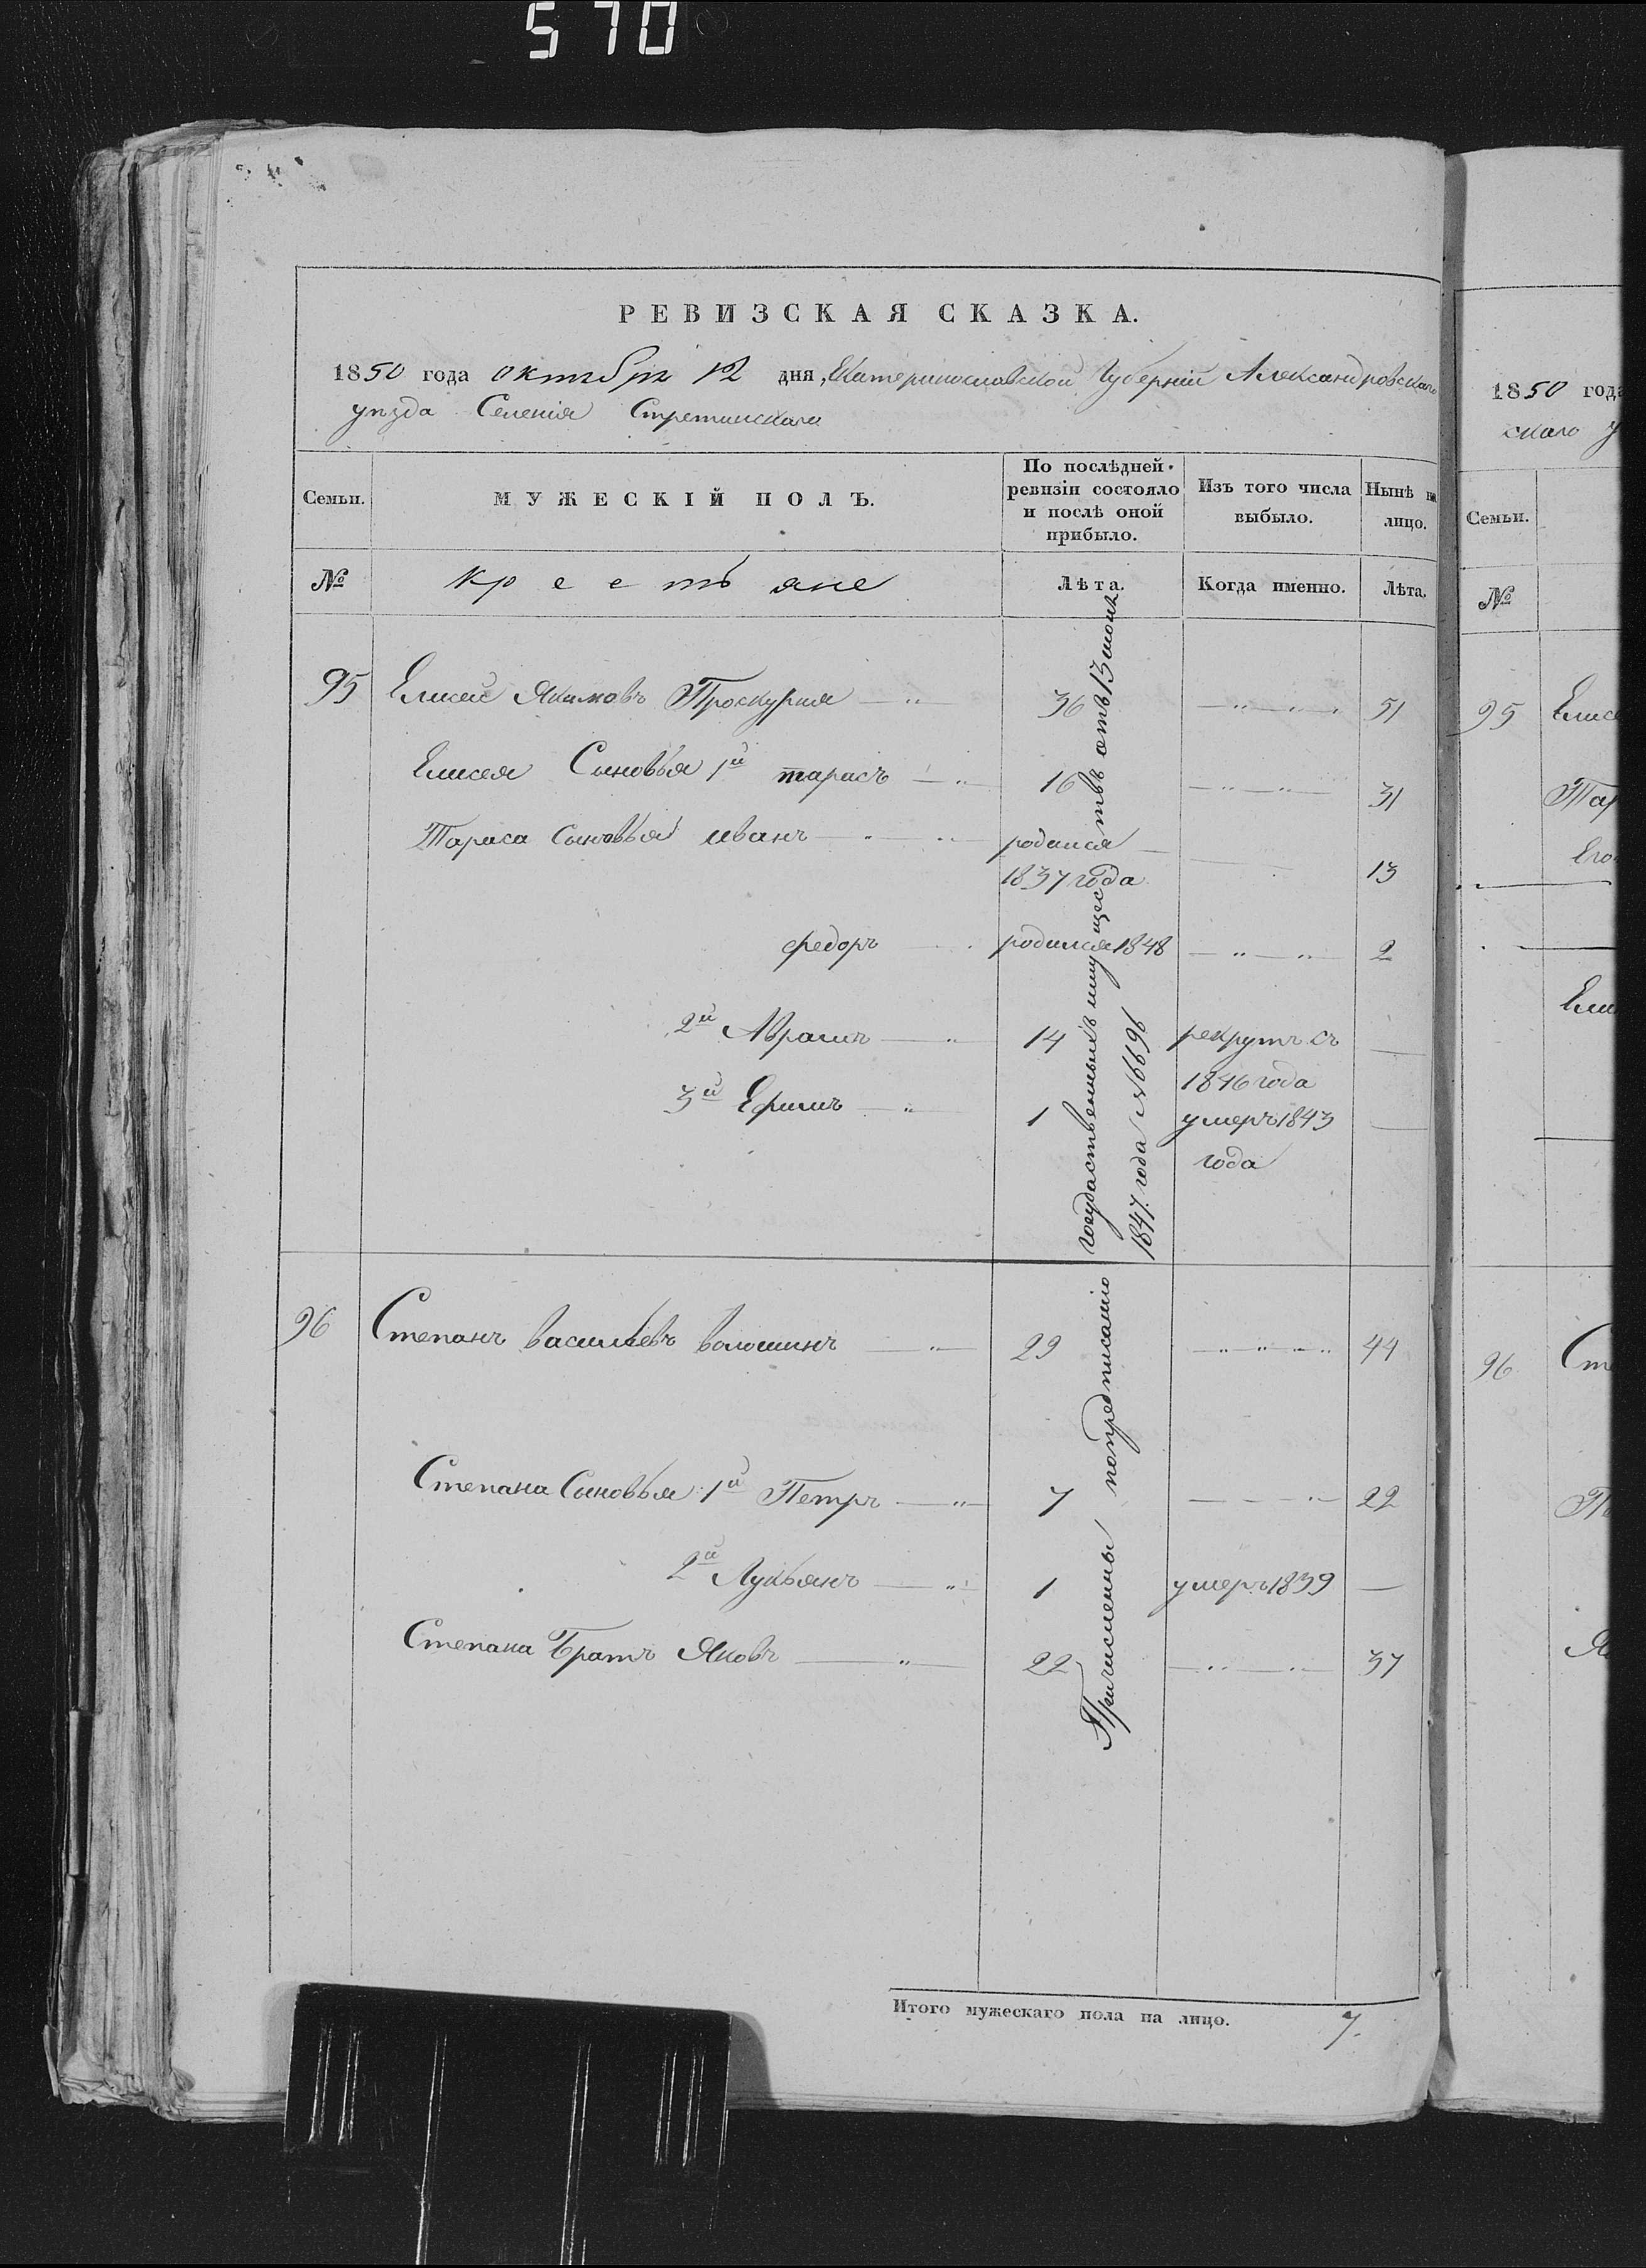 570
РЕВИЗСКАЯ СКАЗКА.
1850 года октября 12 дня, Екатеринославской Губерніи Александровскаго
уѣзда Селенія Стретинскаго
Семьи.
МУЖЕСКІЙ ПОЛЪ.
По послѣдней
ревизіи состояло
и послѣ оной
прибыло.
Изъ того числа
выбыло.
Нынѣ на
лицо.
№ крестьяне Лѣта. Когда именно. Лѣта.
95 Елисей Якимовъ Проскурня — " — 36 — " — " — " 51
Елисея Сыновья 1й тарасъ — " — 16 — " — " — 31
Тараса Сыновья иванъ — " — родился —
1837 года 13
федоръ — родился 1848 — " — " — 2
2й Абрамъ — " — 14 рекрутъ съ —
1846 года
3й Ефимъ — " — 1 умеръ 1843 —
года
96 Степанъ васильевъ волошинъ — " — 29 — " — " — " — " 44
Степана Сыновья 1й Петръ — " — 7 — — " — 22
2й Лукьянъ — " — 1 умеръ 1839 —
Степана Братъ Яковъ — " — 22 — " — " — 37
Причисленны попредписанію государственныхъ имуществъ отъ 13 июня
1847. года № 6696
Итого мужескаго пола на лицо. 7.
1850 года
скаго у
Семьи.
№
95 Елисе
Тар
Его
Ели
96 Сте
Пе
Як